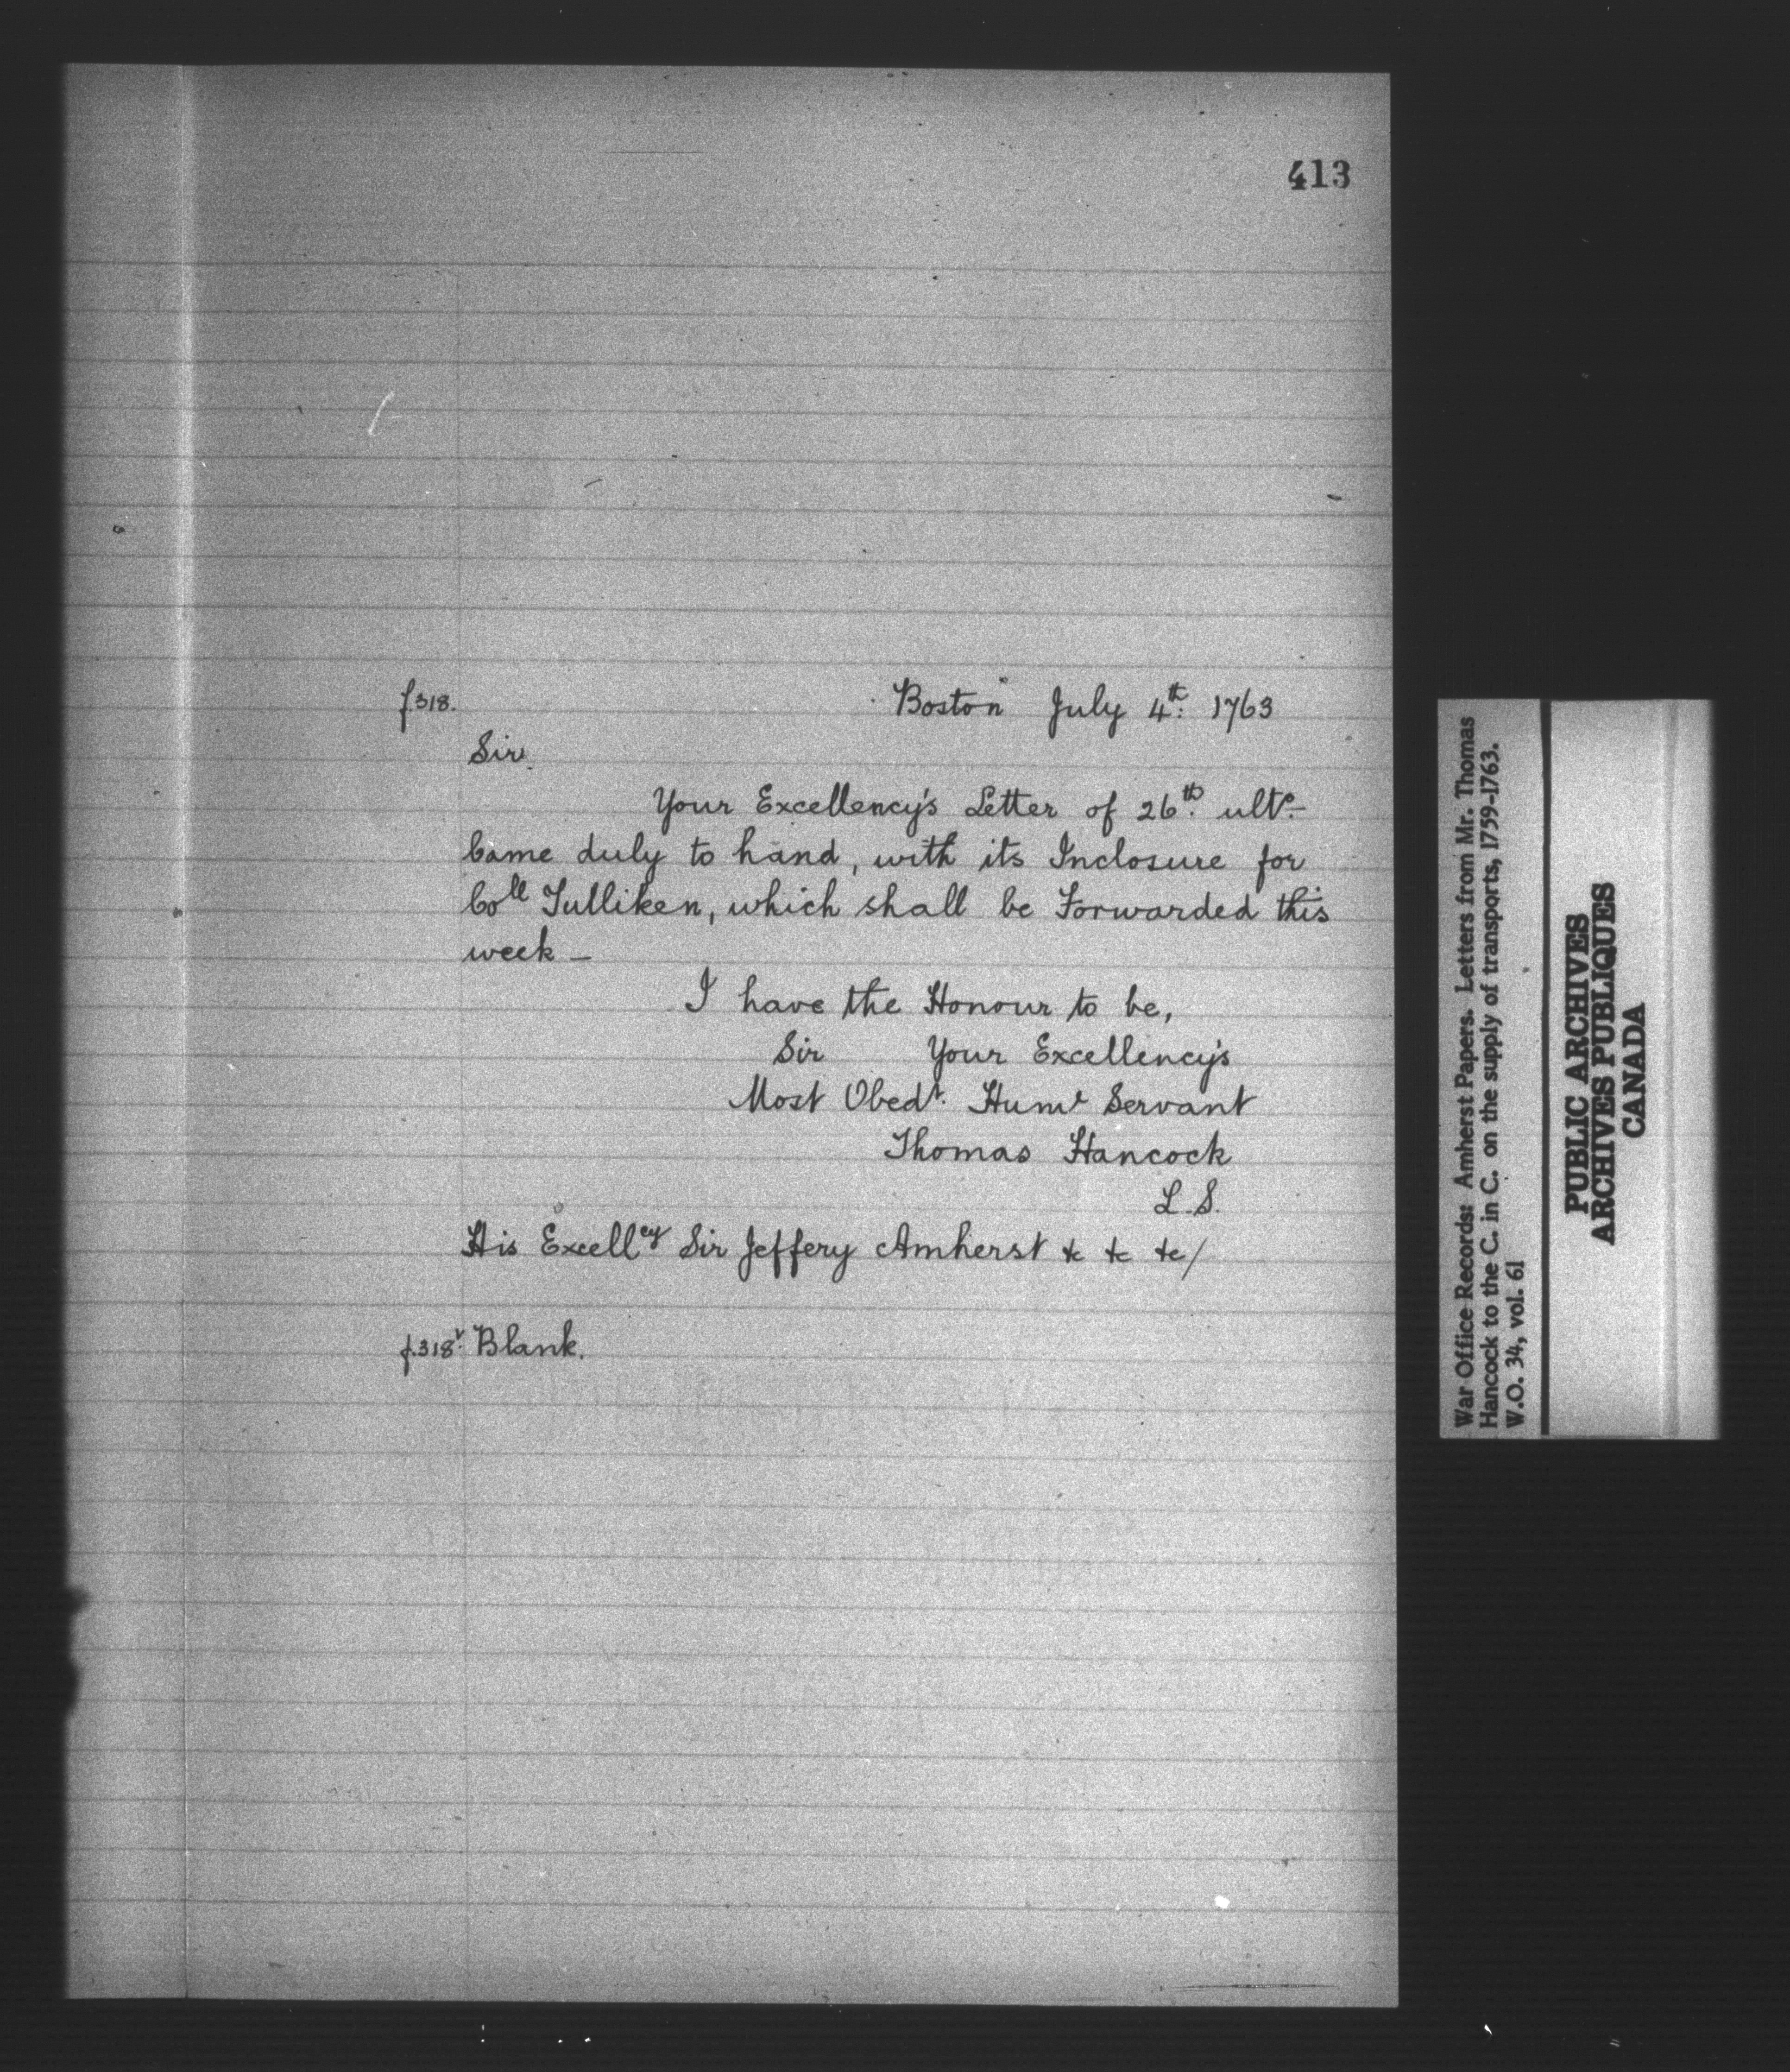 413
f.318. Boston July 4th: 1763
Sir.
Your Excellency's Letter of 26th. ulto.
Came duly to hand, with its Inclosure for
Coll Tulliken, which shall be Forwarded this
week —
I have the Honour to be,
Sir Your Excellency's
Most Obedt. Humе Servant
Thomas Hancock
L.S.
His Excellcy Sir Jeffery Amherst &c &c &c/
f.318v. Blank.
War Office Records: Amherst Papers. Letters from Mr. Thomas
Hancock to the C. in C. on the supply of transports, 1759-1763.
W.O. 34, vol. 61
PUBLIC ARCHIVES
ARCHIVES PUBLIQUES
CANADA